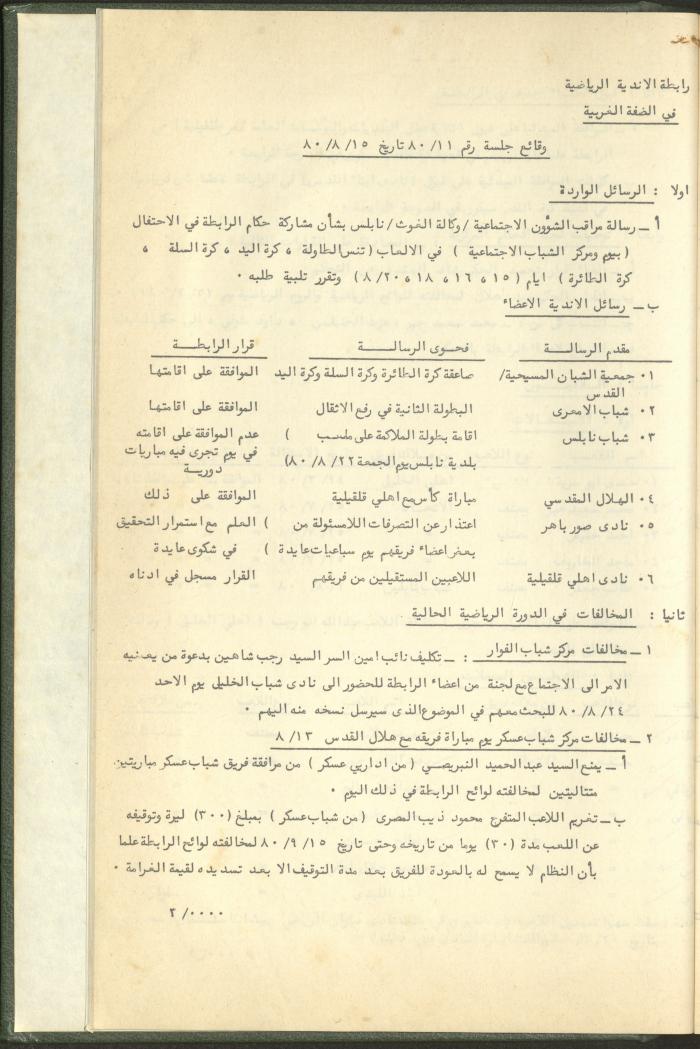 رابطة الاندية الرياضية
في الضفة الغربية
وقائع جلسة رقم ٨٠/١١ تاريخ ٨٠/٨/١٥
اولا : الرسائل الواردة
أ ــ رسالة مراقب الشؤون الاجتماعية / وكالة الغوث / نابلس بشأن مشاركة حكام الرابطة في الاحتفال
( بيوم ومركز الشباب الاجتماعية ) في الالعاب ( تنس الطاولة ، كرة اليد ، كرة السلة ،
كرة الطائرة ) ايام ( ١٥ ، ١٦ ، ١٨ ، ٨/٢٠ ) وتقرر تلبية طلبه ٠
ب ــ رسائل الاندية الاعضاء
مقدم الرسالة فحوى الرسالة قرار الرابطة
٠١ جمعية الشبان المسيحية/ صاعقة كرة الطائرة وكرة السلة وكرة اليد الموافقة على اقامتها
القدس
٠٢ شباب الامعرى البطولة الثانية في رفع الاثقال الموافقة على اقامتها
٠٣ شباب نابلس اقامة بطولة الملاكمة على ملعب ) عدم الموافقة على اقامته
بلدية نابلس يوم الجمعة ٨٠/٨/٢٢) في يوم تجرى فيه مباريات
دورية
٠٤ الهلال المقدسي مباراة كأس مع اهلي قلقيلية الموافقة على ذلك
٠٥ نادى صور باهر اعتذار عن التصرفات اللامسئولة من ) العلم مع استمرار التحقيق
بعض اعضاء فريقهم يوم سباعيات عايدة ) في شكوى عايدة
٠٦ نادى اهلي قلقيلية اللاعبين المستقيلين من فريقهم القرار مسجل في ادناه
ثانيا : المخالفات في الدورة الرياضية الحالية
١ ــ مخالفات مركز شباب الفوار : ــ تكليف نائب امين السر السيد رجب شاهين بدعوة من يعنيه
الامر الى الاجتماع مع لجنة من اعضاء الرابطة للحضور الى نادى شباب الخليل يوم الاحد
٨٠/٨/٢٤ للبحث معهم في الموضوع الذى سيرسل نسخه منه اليهم ٠
٢ ــ مخالفات مركز شباب عسكر يوم مباراة فريقه مع هلال القدس ٨/١٣
أ ــ يمنع السيد عبد الحميد النبريصي ( من اداريي عسكر ) من مرافقة فريق شباب عسكر مباريتين
متتاليتين لمخالفته لوائح الرابطة في ذلك اليوم ٠
ب ــ تغريم اللاعب المتفرج محمود ذيب المصرى ( من شباب عسكر ) بمبلغ (٣٠٠) ليرة وتوقيفه
عن اللعب مدة (٣٠) يوما من تاريخه وحتى تاريخ ٨٠/٩/١٥ لمخالفته لوائح الرابطة علما
بأن النظام لا يسمح له بالعودة للفريق بعد مدة التوقيف الا بعد تسديده لقيمة الغرامة ٠
٢/٠٠٠٠